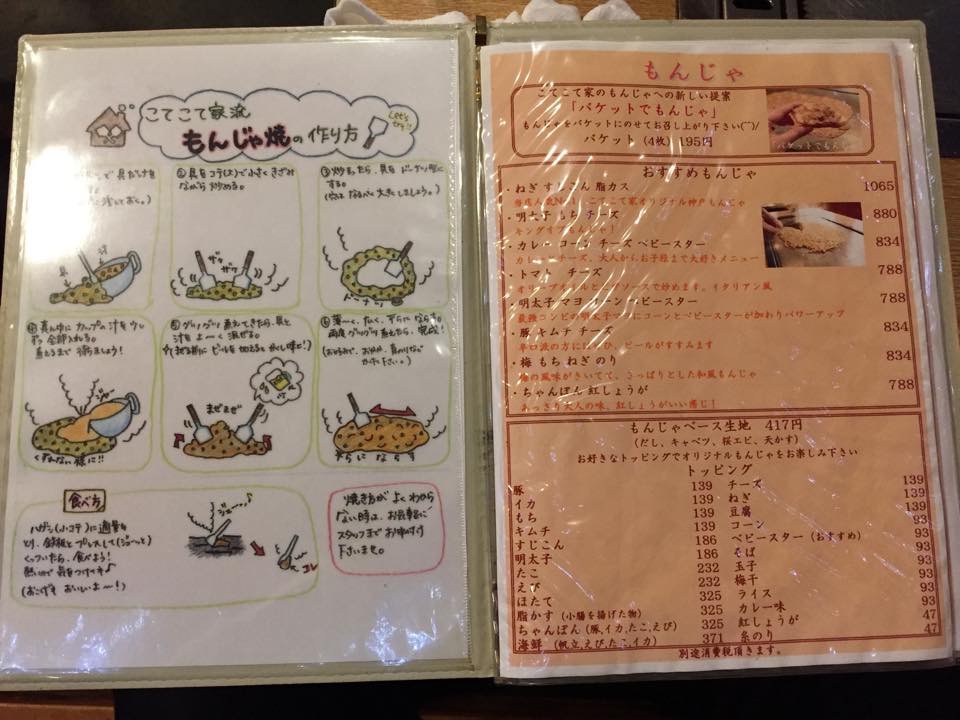 こてこて家流
もんじゃ焼の作り方
Let's try!!
で具だけを
②具をコテ(大)で小さくきざみ
ながら炒める。
ザッ
ザッ
③炒まったら、具をドーナツ形に
する。
(穴はなるべく大きくしましょう。)
ドーナツ
具
④真ん中にカップの汁を少し
ずつ全部入れる。
煮えるまで待ちましょう!
くずれない様に!!
⑤グツグツ煮えてきたら、具と
汁をよ〜く混ぜる。
まぜまぜ
⑥薄〜く、広く、平らにならす。
再度グツグツ煮えたら、完成!
平らにならす
食べ方
ハガシ(小コテ)に適量を
とり、鉄板とプレスして(ジュ〜っと)
くっついたら、食べよう!
熱いので気をつけてネ♪
(おこげもおいしいよ〜!)
コレ
焼き方がよくわから
ない時は、お気軽に
スタッフまでお申し付け
下さいませ。
もんじゃ
こてこて家のもんじゃへの新しい提案
「バケットでもんじゃ」
もんじゃをバケットにのせてお召し上がり下さい(^^)/
バケット (4枚) 195円
バケットでもんじゃ
おすすめもんじゃ
・ねぎ すじこん 脂カス 1065
当店人気No.1、こてこて家オリジナル神戸もんじゃ
・明太子 もち チーズ 880
キングオブもんじゃ!
・カレー コーン チーズ ベビースター 834
カレーとチーズ、大人からお子様まで大好きメニュー
・トマト チーズ 788
オリーブオイルとソースで炒めます。イタリアン風
・明太子 マヨ コーン ベビースター 834
最強コンビの明太子マヨにコーンとベビースターが加わりパワーアップ
・豚 キムチ チーズ 834
辛口派の方にはぜひ、ビールがすすみます
・梅 もち ねぎ のり 834
梅の風味がきいてて、さっぱりとした和風もんじゃ
・ちゃんぽん 紅しょうが 788
あっさり大人の味、紅しょうがいい感じ!
もんじゃベース生地 417円
(だし、キャベツ、桜エビ、天かす)
お好きなトッピングでオリジナルもんじゃをお楽しみ下さい
トッピング
豚 139 チーズ 139
イカ 139 ねぎ 139
もち 139 豆腐 93
キムチ 139 コーン 93
すじこん 186 ベビースター (おすすめ) 93
明太子 186 そば 93
たこ 232 玉子 93
えび 232 梅干 93
ほたて 325 ライス 93
脂かす (小腸を揚げた物) 325 カレー味 93
ちゃんぽん (豚,イカ,たこ,えび) 325 紅しょうが 47
海鮮 (帆立,えび,たこ,イカ) 371 糸のり 47
別途消費税頂きます。